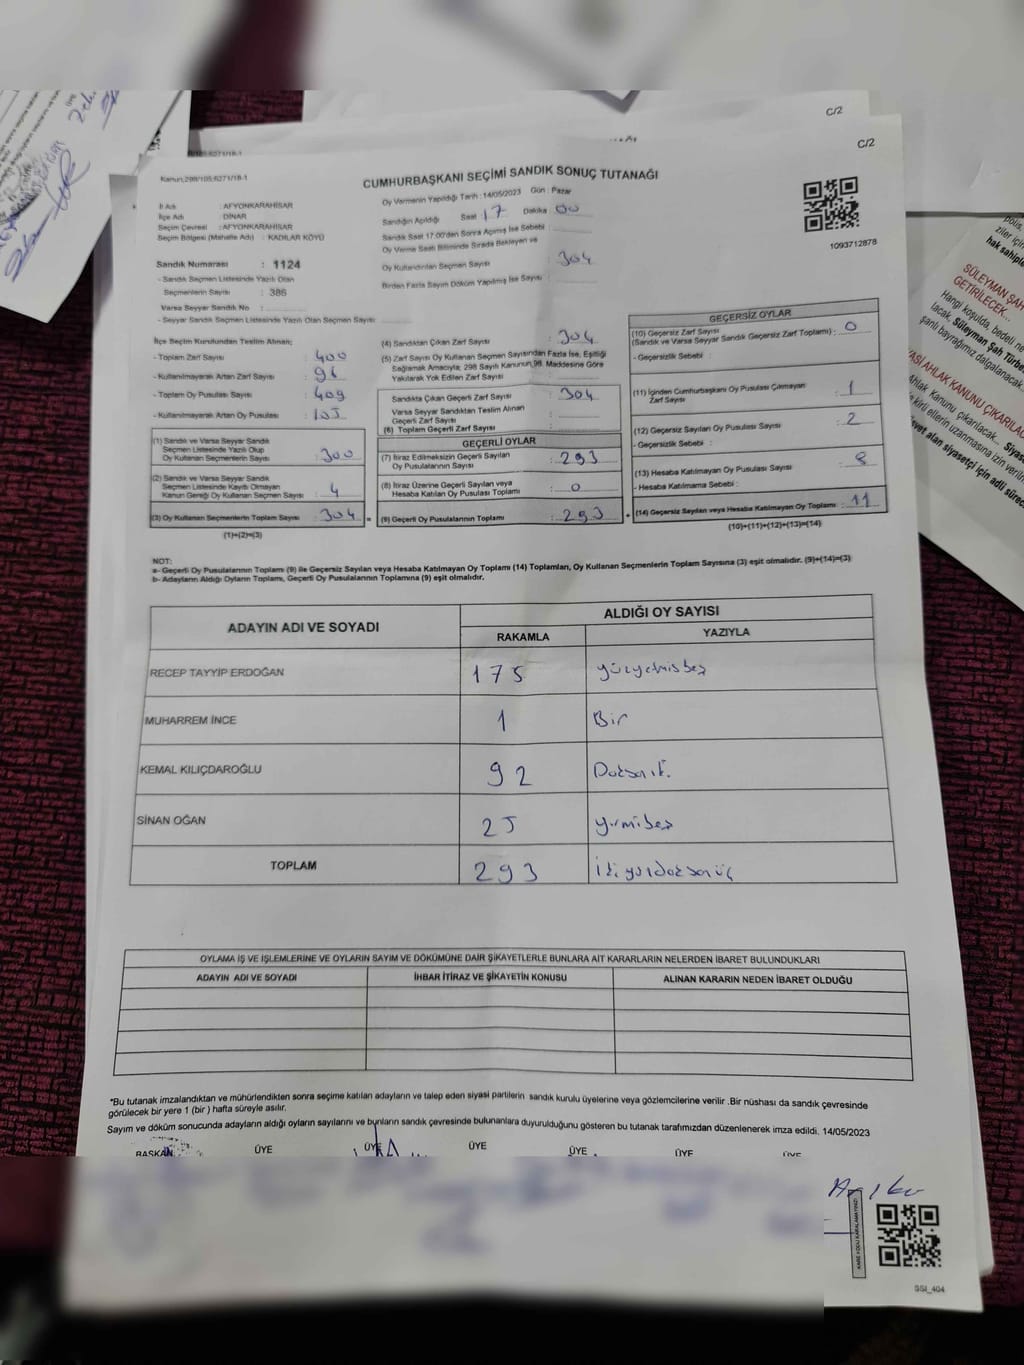 C/2
C/2
Kanun:298/105;6271/18-1
CUMHURBAŞKANI SEÇİMİ SANDIK SONUÇ TUTANAĞI
1093712878
İl Adı : AFYONKARAHİSAR
İlçe Adı : DİNAR
Seçim Çevresi : AFYONKARAHİSAR
Seçim Bölgesi (Mahalle Adı) : KADILAR KÖYÜ
Sandık Numarası : 1124
- Sandık Seçmen Listesinde Yazılı Olan
Seçmenlerin Sayısı : 386
Varsa Seyyar Sandık No :
- Seyyar Sandık Seçmen Listesinde Yazılı Olan Seçmen Sayısı
Oy Vermenin Yapıldığı Tarih : 14/05/2023 Gün : Pazar
Sandığın Açıldığı Saat 17 Dakika 00
Sandık Saat 17.00'den Sonra Açılmış İse Sebebi :
Oy Verme Saati Bitiminde Sırada Bekleyen ve
Oy Kullandırılan Seçmen Sayısı : 304
Birden Fazla Sayım Döküm Yapılmış İse Sayısı :
İlçe Seçim Kurulundan Teslim Alınan;
- Toplam Zarf Sayısı : 400
- Kullanılmayarak Artan Zarf Sayısı : 96
- Toplam Oy Pusulası Sayısı : 409
- Kullanılmayarak Artan Oy Pusulası : 105
(1) Sandık ve Varsa Seyyar Sandık
Seçmen Listesinde Yazılı Olup
Oy Kullanan Seçmenlerin Sayısı : 300
(2) Sandık ve Varsa Seyyar Sandık
Seçmen Listesinde Kayıtlı Olmayan
Kanun Gereği Oy Kullanan Seçmen Sayısı : 4
(3) Oy Kullanan Seçmenlerin Toplam Sayısı : 304
(1)+(2)=(3)
(4) Sandıktan Çıkan Zarf Sayısı : 304
(5) Zarf Sayısı Oy Kullanan Seçmen Sayısından Fazla İse, Eşitliği
Sağlamak Amacıyla; 298 Sayılı Kanunun 98. Maddesine Göre
Yakılarak Yok Edilen Zarf Sayısı :
Sandıkta Çıkan Geçerli Zarf Sayısı : 304
Varsa Seyyar Sandıktan Teslim Alınan
Geçerli Zarf Sayısı :
(6) Toplam Geçerli Zarf Sayısı :
GEÇERLİ OYLAR
(7) İtiraz Edilmeksizin Geçerli Sayılan
Oy Pusulalarının Sayısı : 293
(8) İtiraz Üzerine Geçerli Sayılan veya
Hesaba Katılan Oy Pusulası Toplamı : 0
= (9) Geçerli Oy Pusulalarının Toplamı : 293
GEÇERSİZ OYLAR
(10) Geçersiz Zarf Sayısı
(Sandık ve Varsa Seyyar Sandık Geçersiz Zarf Toplamı) : 0
- Geçersizlik Sebebi :
(11) İçinden Cumhurbaşkanı Oy Pusulası Çıkmayan
Zarf Sayısı : 1
(12) Geçersiz Sayılan Oy Pusulası Sayısı : 2
- Geçersizlik Sebebi :
(13) Hesaba Katılmayan Oy Pusulası Sayısı : 8
- Hesaba Katılmama Sebebi :
+ (14) Geçersiz Sayılan veya Hesaba Katılmayan Oy Toplamı : 11
(10)+(11)+(12)+(13)=(14)
NOT:
a- Geçerli Oy Pusulalarının Toplamı (9) ile Geçersiz Sayılan veya Hesaba Katılmayan Oy Toplamı (14) Toplamları, Oy Kullanan Seçmenlerin Toplam Sayısına (3) eşit olmalıdır. (9)+(14)=(3)
b- Adayların Aldığı Oyların Toplamı, Geçerli Oy Pusulalarının Toplamına (9) eşit olmalıdır.
ADAYIN ADI VE SOYADI ALDIĞI OY SAYISI
RAKAMLA YAZIYLA
RECEP TAYYİP ERDOĞAN 175 yüzyetmişbeş
MUHARREM İNCE 1 Bir
KEMAL KILIÇDAROĞLU 92
SİNAN OĞAN 25 yirmibeş
TOPLAM 293 ikiyüzdoksanüç
OYLAMA İŞ VE İŞLEMLERİNE VE OYLARIN SAYIM VE DÖKÜMÜNE DAİR ŞİKAYETLERLE BUNLARA AİT KARARLARIN NELERDEN İBARET BULUNDUKLARI
ADAYIN ADI VE SOYADI İHBAR İTİRAZ VE ŞİKAYETİN KONUSU ALINAN KARARIN NEDEN İBARET OLDUĞU
*Bu tutanak imzalandıktan ve mühürlendikten sonra seçime katılan adayların ve talep eden siyasi partilerin sandık kurulu üyelerine veya gözlemcilerine verilir .Bir nüshası da sandık çevresinde
görülecek bir yere 1 (bir ) hafta süreyle asılır.
Sayım ve döküm sonucunda adayların aldığı oyların sayılarını ve bunların sandık çevresinde bulunanlara duyurulduğunu gösteren bu tutanak tarafımızdan düzenlenerek imza edildi. 14/05/2023
BAŞKAN ÜYE ÜYE ÜYE ÜYE ÜYE ÜYE
SSI_404
SÜLEYMAN ŞAH
GETİRİLECEK...
Hangi koşulda, bedeli ne
lacak, Süleyman Şah Türbe
şanlı bayrağımız dalgalanacak
YASI AHLAK KANUNU ÇIKARILAC
Ahlak Kanunu çıkarılacak... Siyas
kirli ellerin uzanmasına izin verilm